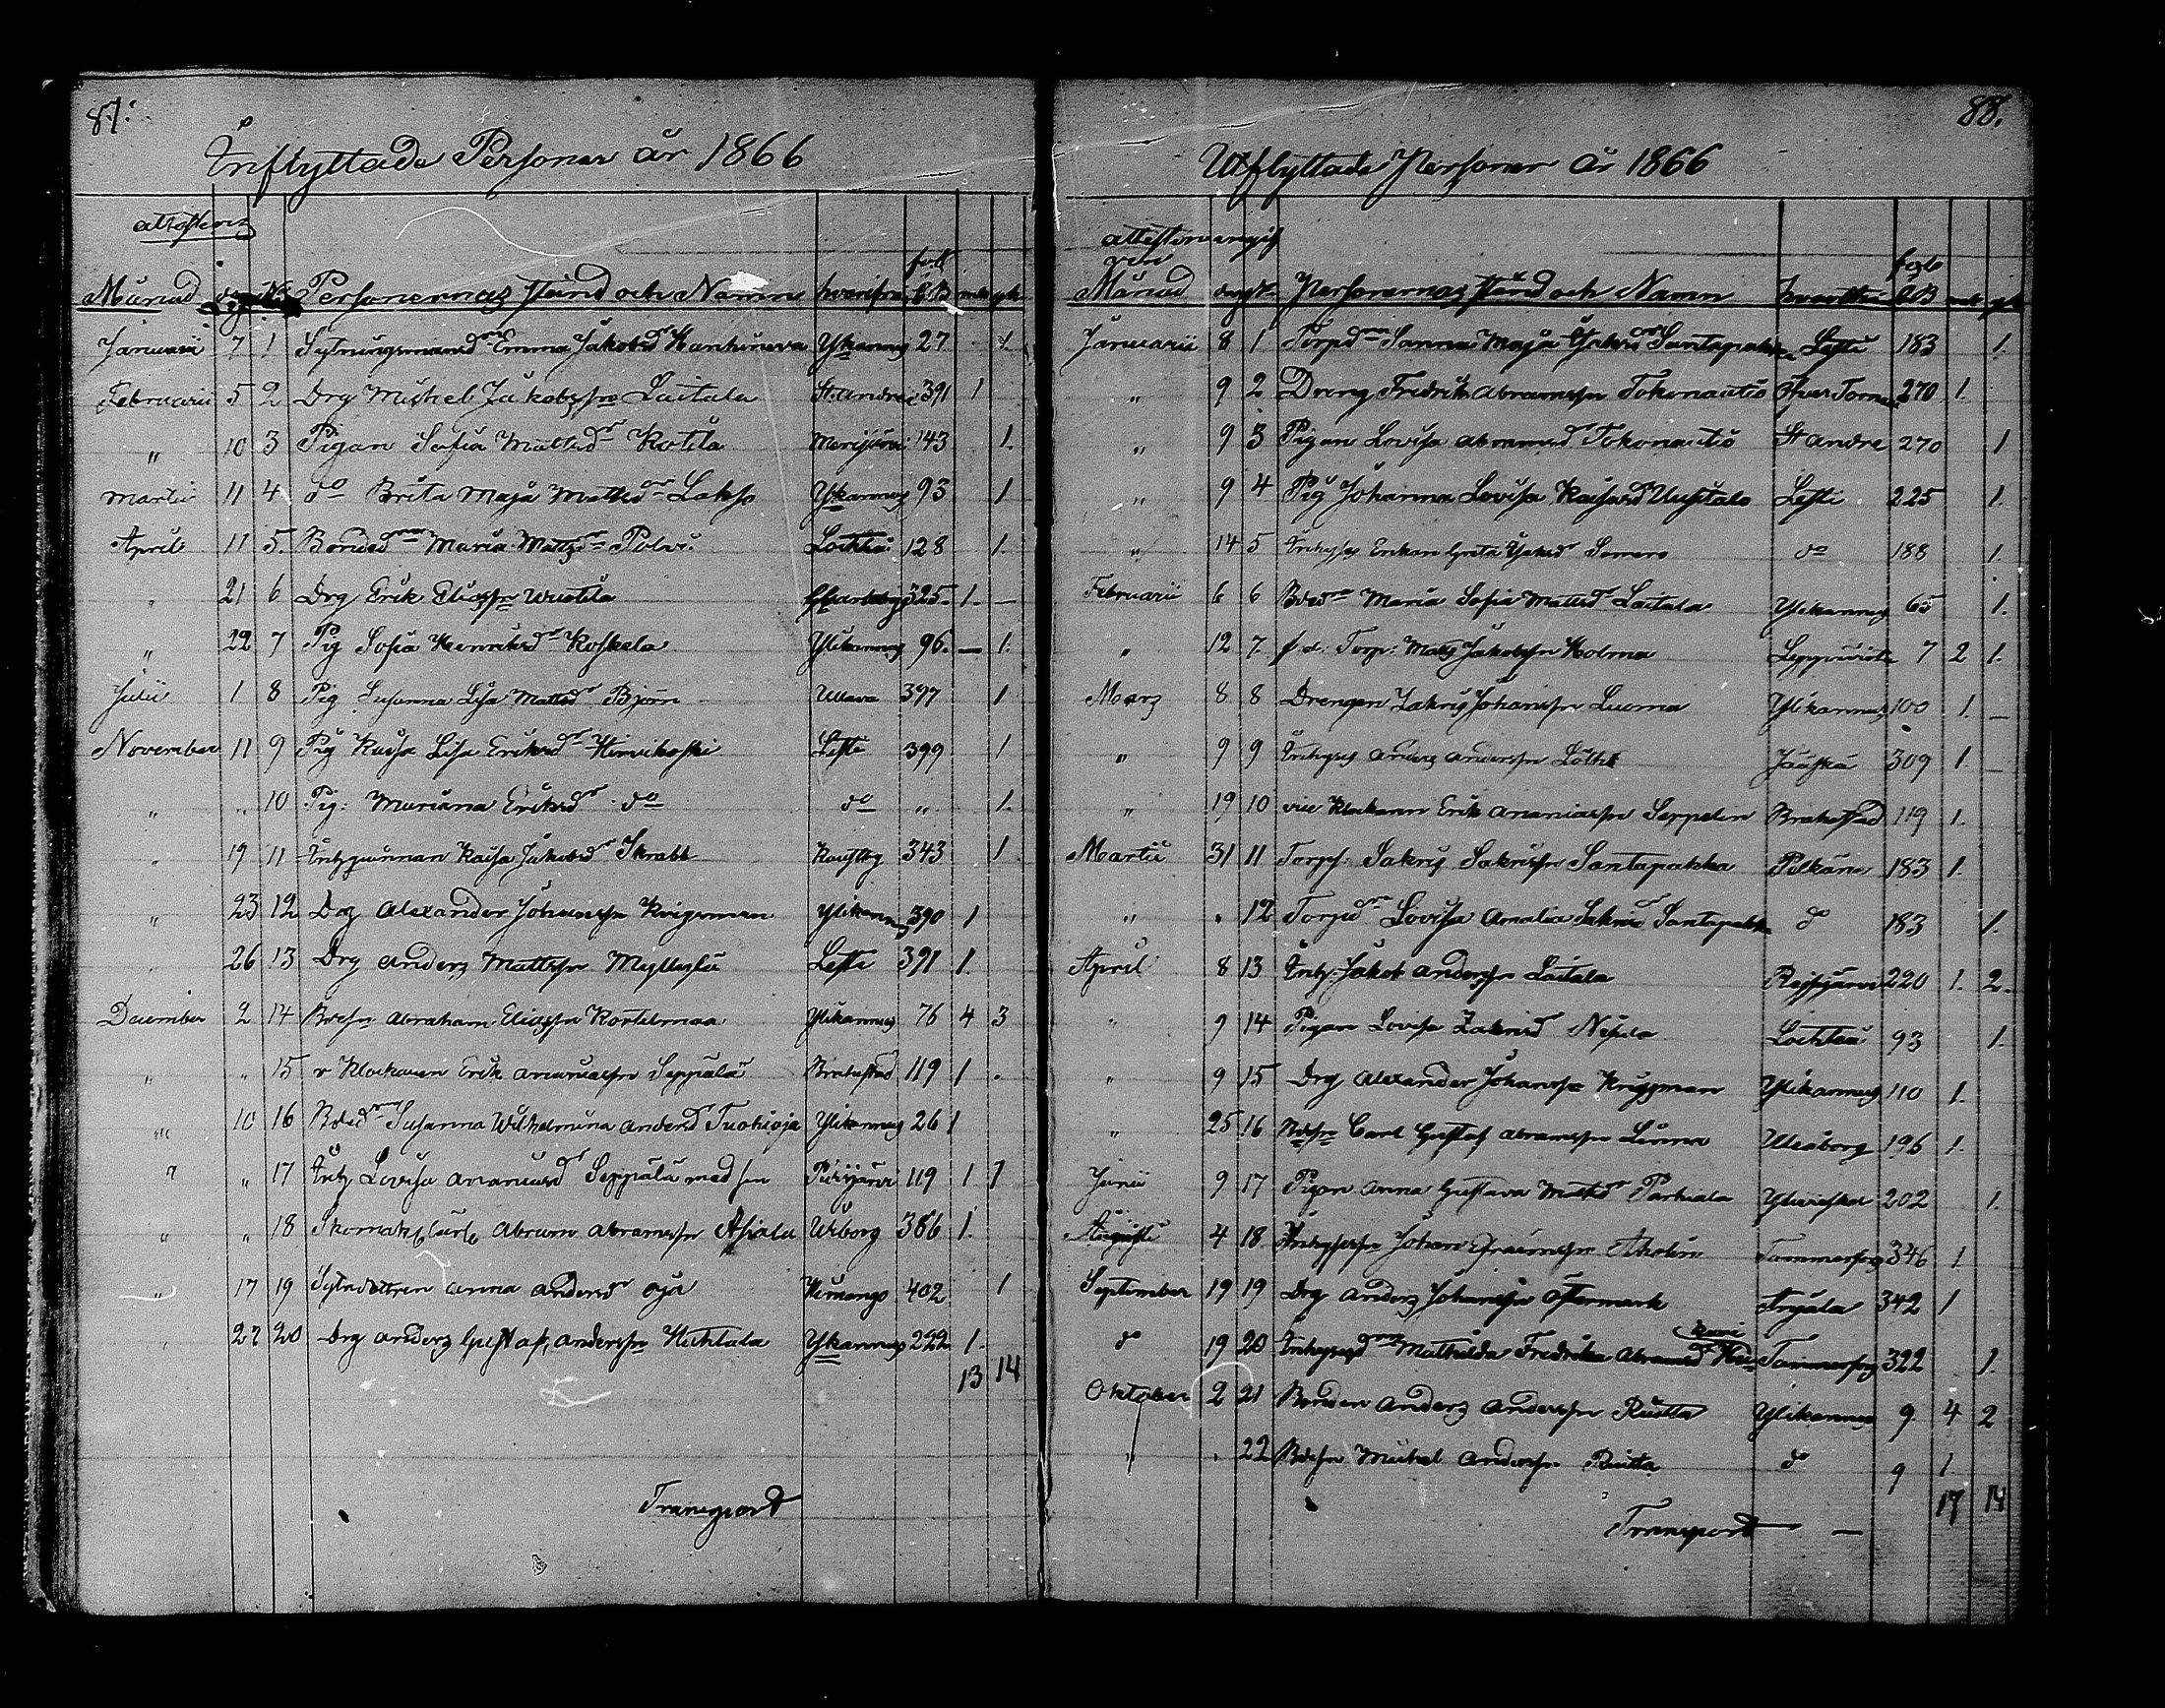 87.
Inflyttade Personer år 1866
attestens
Månad dag No Personernas stånd och Namn hvarifrån foll CB mk qk
Januarii 7 1 Sytningsmansd Emma Jakobsd Hanhineva Ykannus 27 1.
Februarii 5 2 Drg Mickel Jakobsson Laitala St. Andreæ 391 1
" 10 3 Pigan Sofia Mattsd Kotila Merijärvi 143 1.
Martii 11 4 do Brita Maja Mattsd Lakso Ykannus 93 1
April 11 5. Bonded Maria Mattsd Polvi Lochteå 128 1.
" 21 6 Drg Erik Eliasson Wuotila 325. 1. —
" 22 7 Pig Sofia Henriksd Koskela Ylikannus 96. — 1.
Julii 1 8 Pig Susanna Lisa Mattsd Björn Ullava 397 1
November 11 9 Pig Kaisa Lisa Eriksd Himikoski Lesti 399 1
" " 10 Pig: Mariana Eriksd do do " 1.
" 19 11 Kaisa Jakobsd Skrabb Kaustby 343 1
" 23 12 Drg Alexander Johansson Krigsman Ylikannus 390 1
" 26 13 Drg Anders Mattsson Myllyslä Lesti 391 1.
December 2 14 Bdeson Abraham Eliasson Kortelmaa Ylikannus 76 4 3
" " 15 v Klockaren Erik Ananiasson Seppälä Brahestad 119 1 .
" 10 16 Bded Susanna Wilhelmina Andersd Tuohioja Ylikannus 26 1
" " 17 Inhy Lovisa Ananiasd Seppälä med son Pidisjärvi 119 1 1
" " 18 Skomak Abram Abramsson Asiala Wiborg 386 1.
" 17 19 Sytndottren Anna Andersd Oja Himango 402 1
" 27 20 Drg Anders Gustaf Andersson Huhtala Ykannus 222 1.
13 14
Transport
88.
Utflyttade Personer År 1866
attestens
Månad dag No Personernas stånd och Namn hvarthän folio CB mk qk
Januarii 8 1 Torpd Sanna Maja Jakobsd Santapakka Lesti 183 1.
" 9 2 Dreng Fredrik Abramsson Tokonautio Öfver Torneå 270 1.
" 9 3 Pigan Lovisa Abramsd Tokonautio St Andre 270 1
" 9 4 Pig Johanna Lovisa Uusitalo Lesti 225 1.
" 14 5 Inhyses Enkan Greta Jakobsd Somero do 188 1.
Februarii 6 6 Bded Maria Sofia Mattsd Laitala Ylikannus 65 1.
" 12 7. f.d. Torp: Matts Jakobsson Holma Leppävirta 7 2 1.
Marz 8 8 Drengen Zakris Johansson Luoma Ylikannus 100 1. —
" 9 9 Inhyses Anders Andersson Löthi Jääskä 309 1. —
" 19 10 vice Klockaren Erik Ananiasson Seppelin Brahestad 119 1.
Martii 31 11 Torps: Sakris Sakrisson Santapakka Pelkäne 183 1.
" " 12 Torpd Lovisa Amalia Sakrisd Santapakka do 183 1.
April 8 13 Inhy: Jakob Andersson Laitala Reisjärvi 220 1. 2.
" 9 14 Pigan Lovisa Zakrisd Niskala Lochteå 93 1.
" 9 15 Drg Alexander Johansson Krigsman Ylikannus 110 1.
" 25 16 Bdeson Carl Gustaf Abramsson Linna Uleåborg 196 1.
Junii 9 17 Pigan Anna Gustava Mattsd Parhiala Ylivieska 202 1.
Augusti 4 18. Inhysesson Johan Efraimsson Aholin Tammerfors 346 1
September 19 19 Drg Anders Johansson Östermark Anjala 342 1
do 19 20 Inhysesd Mathilda Fredrika Abramsd Tammerfors 322 1.
Oktober 2 21 Bonden Anders Andersson Riutta Ylikannus 9. 4 2
" " 22 Bdeson Mickel Andersson Riutta do 9 1.
17 14
Transport — —